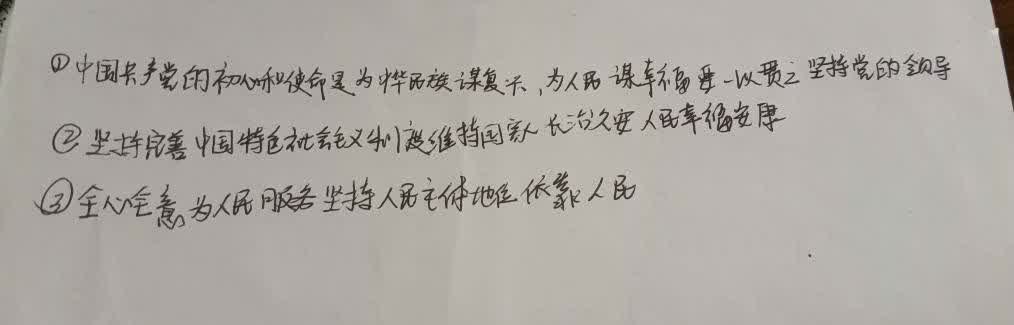 ①中国共产党的初心和使命是为中华民族谋复兴,为人民谋幸福要一以贯之坚持党的领导
②坚持完善中国特色社会主义制度维持国家长治久安人民幸福安康
③全心全意为人民服务坚持人民主体地位依靠人民